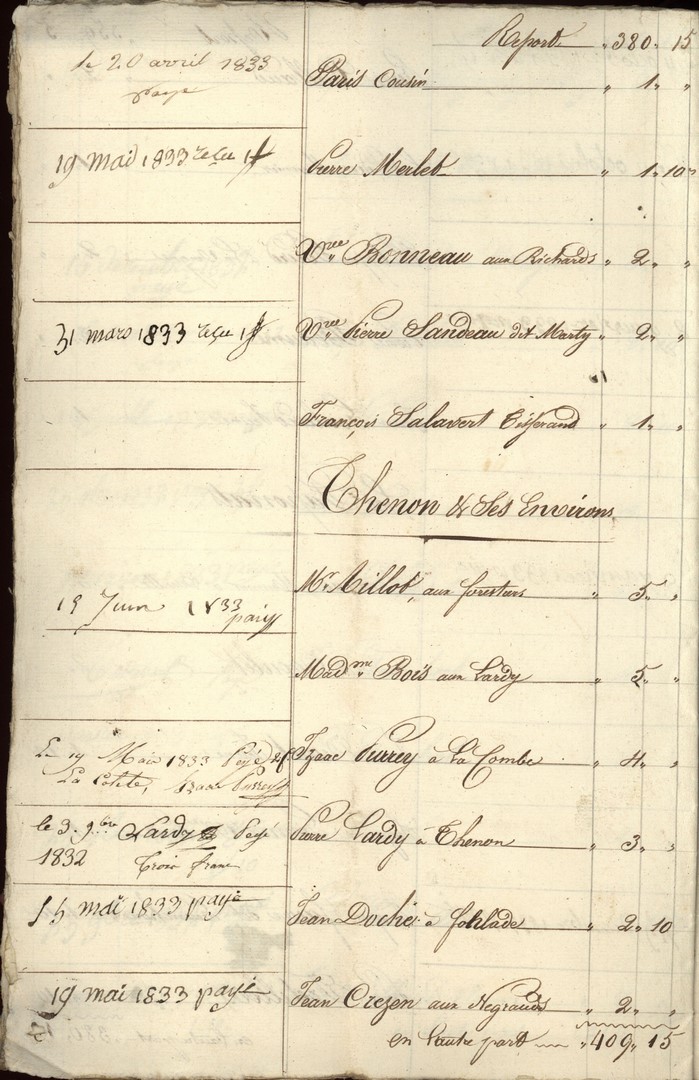 Report " 380 " 15
le 20 avril 1833
payé
Paris Cousin " 1 " "
19 mai 1833 reçu 1f
Pierre Merlet " 1 " 10 "
Vve Bonneau aux Richards " 2 " "
31 mars 1833 reçu 1f
Vve Pierre Sandeau dit Marty " 2 " "
François Salavert " 1 " "
Thenon & Ses Environs
Mr Aillot, aux forestiers " 5 " "
15 Juin 1833
payé
Madme Bois aux Lardy " 5 " "
Le 19 Mai 1833 Payé 2f
La Cotite, Izaac Purrey
Izaac Purrey à la Combe " 4 " "
le 3. 9bre Lardy Peyé
1832 trois franc
Pierre Lardy à Thenon " 3 " "
15 mai 1833 payé
Jean Doche à " 2 " 10
19 mai 1833 payé
Jean Crezen aux Negrauds " 2 " "
en l'autre part " 409 " 15